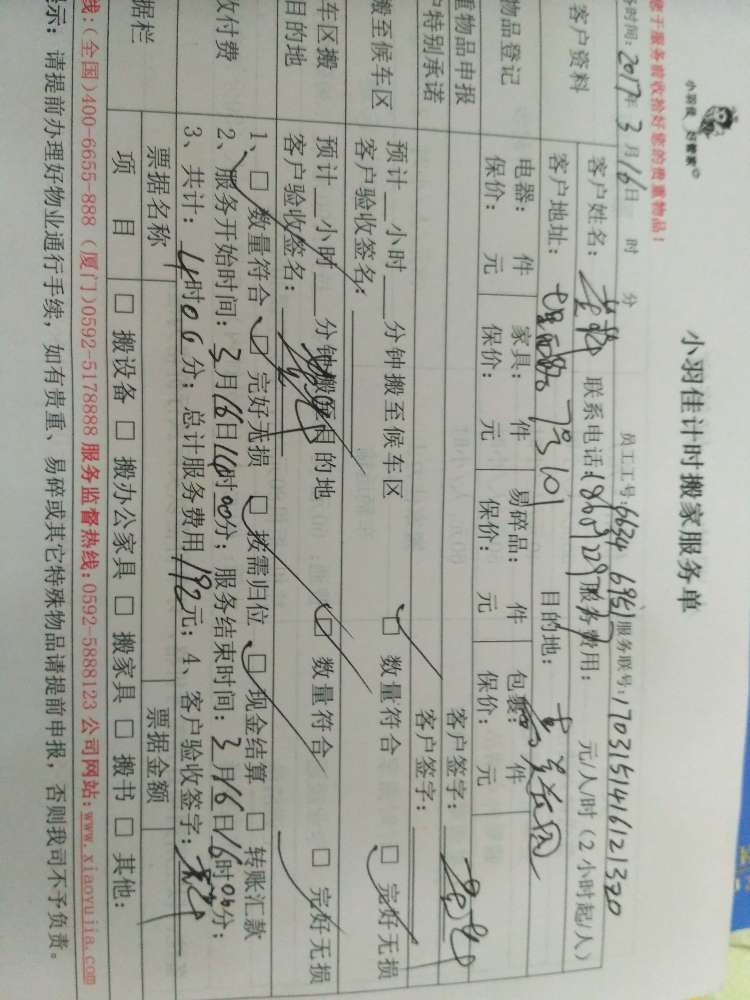 小羽佳 好管家
小羽佳计时搬家服务单
您于服务前收拾好您的贵重物品！
务时间：2017年 3月16日 时 分 员工工号：6634 服务联号：1703151416121320
客户资料 客户姓名： 联系电话： 服务费用： 元/人/时（2小时起/人）
客户地址： 目的地：
物品登记 电器： 件 家具： 件 易碎品： 件 包裹： 件
保价： 元 保价： 元 保价： 元 保价： 元
重物品申报 客户签字：
户特别承诺 客户签字：
搬至候车区 预计__小时__分钟搬至候车区 □ 数量符合 □ 完好无损
客户验收签名：
车区搬 预计__小时__分钟搬至目的地 □ 数量符合 □ 完好无损
目的地 客户验收签名：
收付费 1、□ 数量符合 □ 完好无损 □ 按需归位 □ 现金结算 □ 转账汇款
2、服务开始时间：3月16日14时00分；服务结束时间：3月16日16时06分；
3、共计：4时06分；总计服务费用192元；4、客户验收签字：
据栏 票据名称 票据金额
项 目 □ 搬设备 □ 搬办公家具 □ 搬家具 □ 搬书 □ 其他：
线：(全国)400-6655-888 (厦门)0592-5178888 服务监督热线：0592-5888123 公司网站：www.xiaoyujia.com
示：请提前办理好物业通行手续，如有贵重、易碎或其它特殊物品请提前申报，否则我司不予负责。